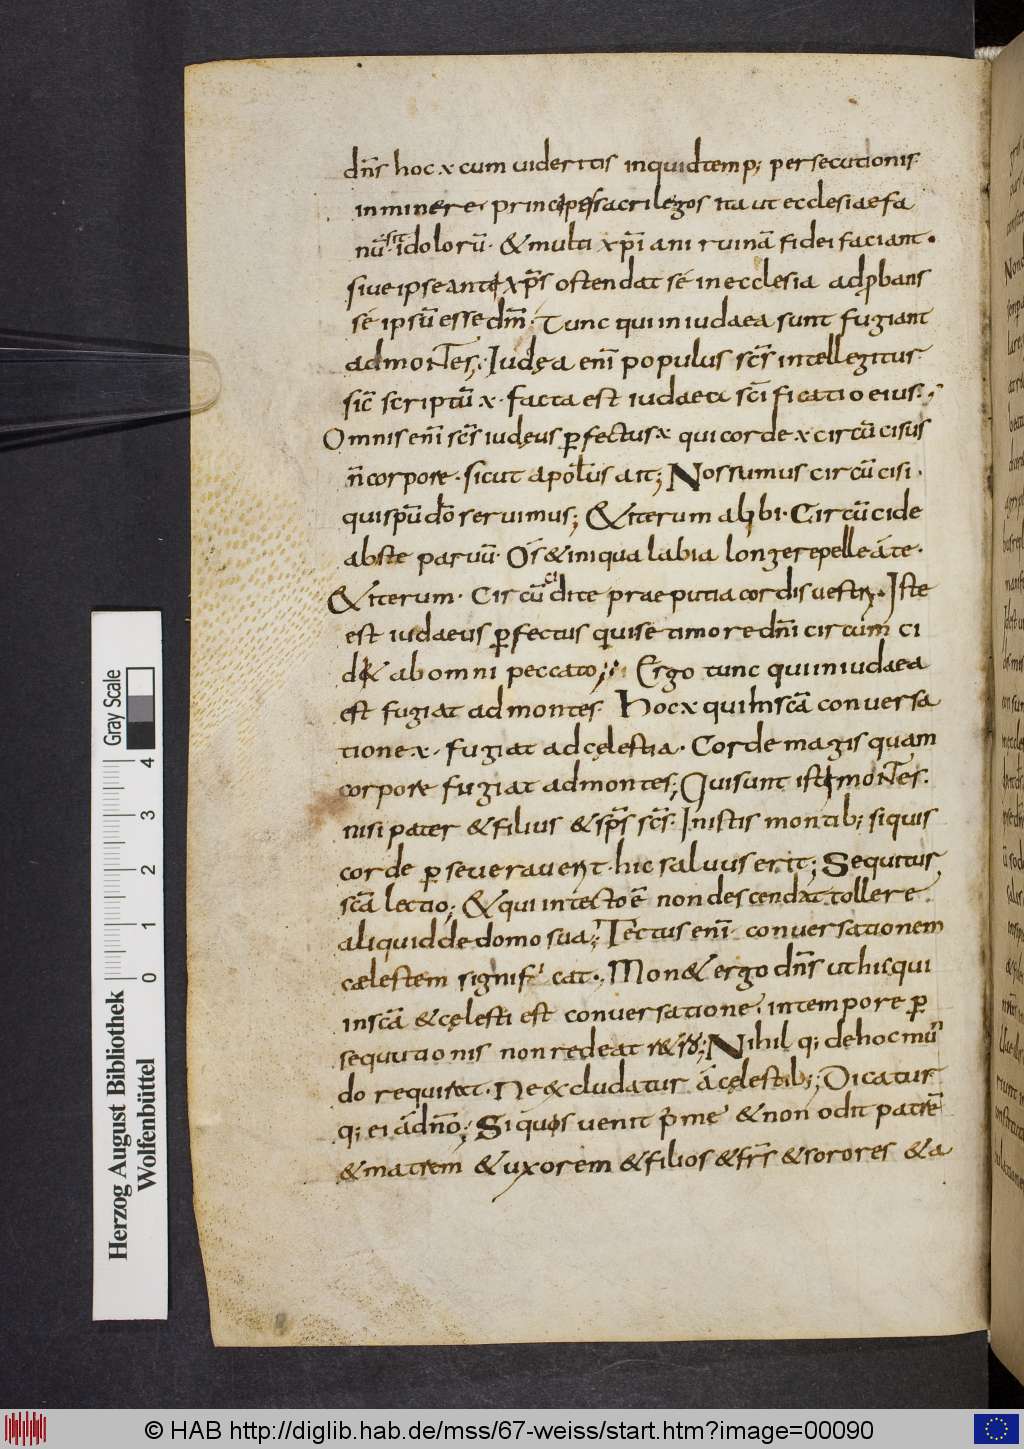 dn̄s hoc x cum uideritis inquid temp; persecutionis
inminere· principes sacrilegos ita ut ecclesiae fa
nū sit idolorū· & multi xp̄iani ruinā fidei faciant·
siue ipse antexp̄s ostendat sé in ecclesia adpbans
sé ipsū esse dm̄· Tunc qui in iudaea sunt fugiant
ad montes; Iudęa enī populus sc̄s intellegitur
sic̄ scriptū x· facta est iudaea sc̄ificatio eius·
Omnis enī sc̄s iudęus ꝑfectus x qui corde x circūcisus
n̄ corpore· sicut apoīus ait; Nos sumus circūcisi·
qui spū dō seruimus; & iterum alibi· Circūcide
abs te paruū· Os & iniqua labia longe repelle á te·
& iterum· Circūcidite praeputia cordis uestri· Iste
est iudaeus ꝑfectus qui se timore dn̄i circumci
d& ab omni peccato; Ergo tunc qui in iudaea
est fugiat ad montes· Hoc x qui in scā conuersa
tione x· fugiat ad cęlestia· Corde magis quam
corpore fugiat ad montes; Qui sunt isti montes·
nisi pater & filius & sps̄ sc̄s· In istis montib; siquis
corde ꝑseuerauerit· hic saluus erit; Sequitur
scā lectio; & qui in tecto ē non descendat tollere
aliquid de domo sua; Tectus enī conuersationem
caelestem significat· Mon& ergo dn̄s ut hi qui
in scā & cęlesti est conuersatione· in tempore ꝑ
sequutionis non redeat r&ro; Nihil q; de hoc mun
do requirat· Ne excludatur á cęlestib; Dicatur
q; ei á dn̄o; Si quis uenit p̄ me & non odit patrē
& matrem & uxorem & filios & frs̄ & sorores & a
Herzog August Bibliothek
Wolfenbüttel
Gray Scale
0 1 2 3 4
© HAB http://diglib.hab.de/mss/67-weiss/start.htm?image=00090